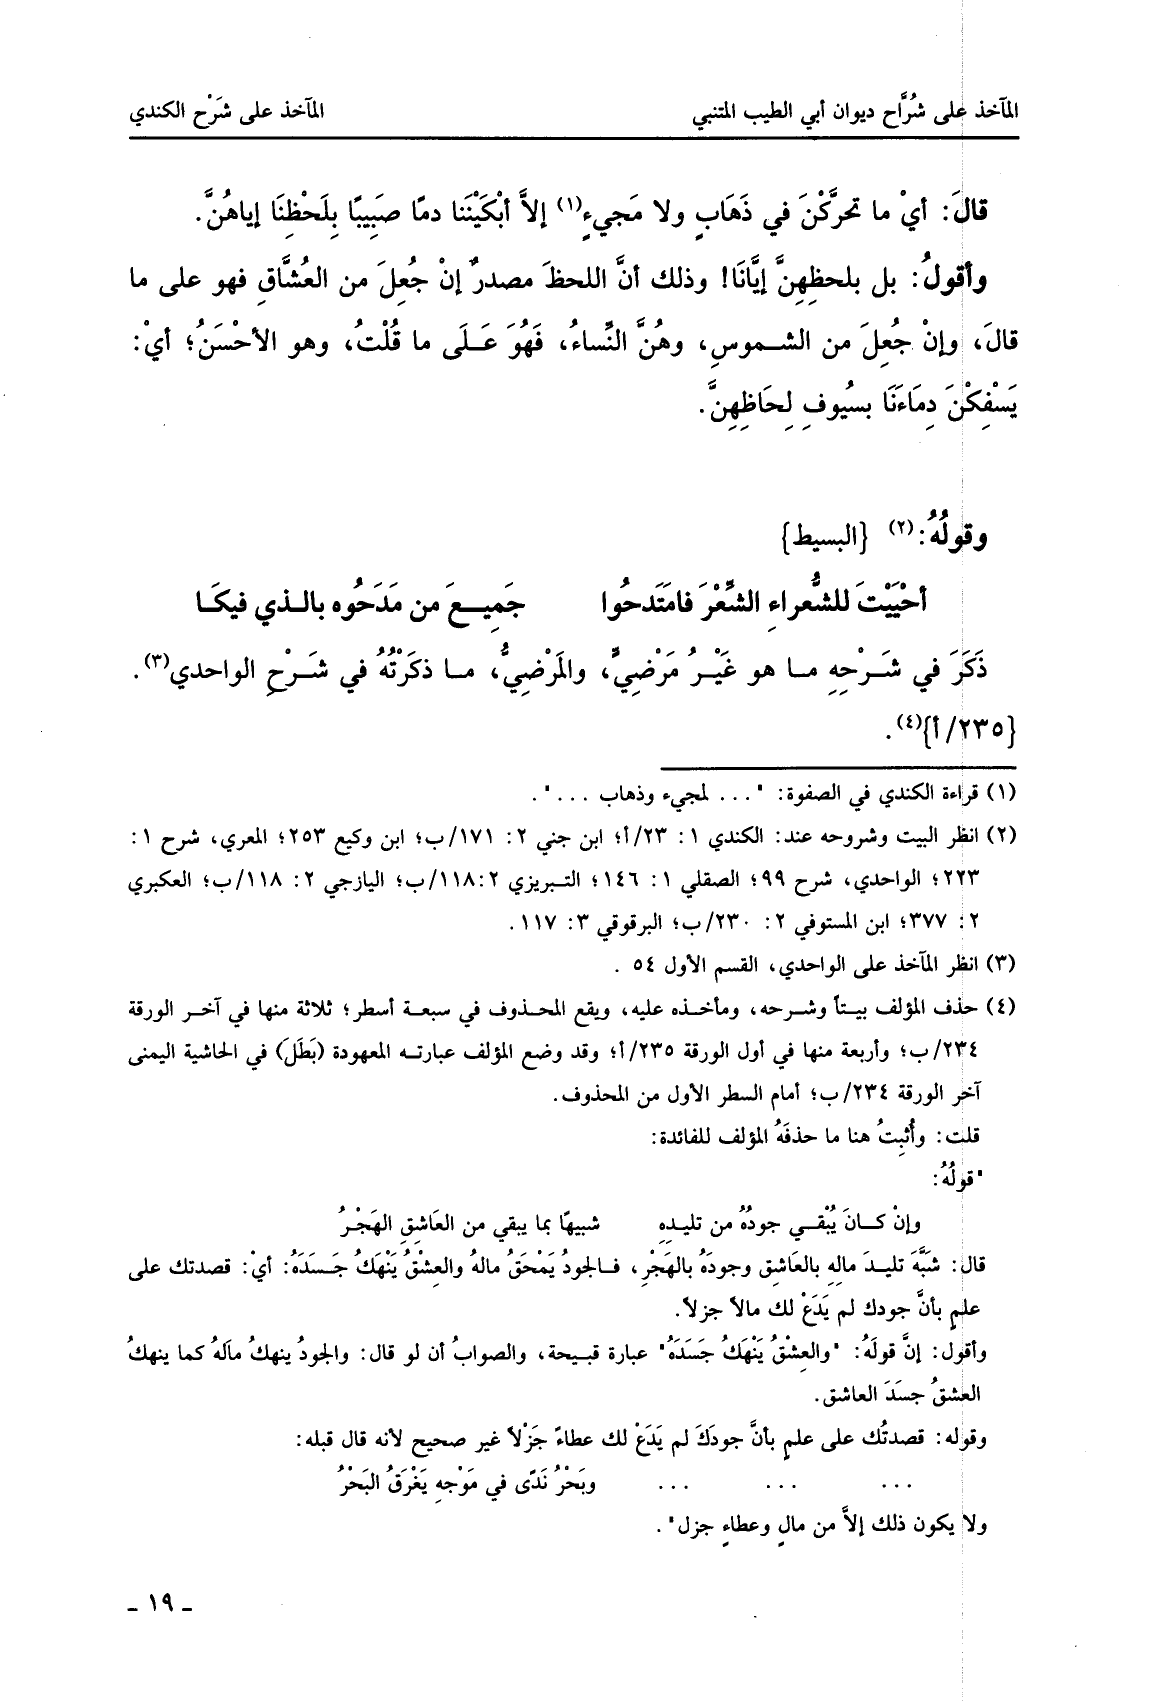 المآخذ على شُرَّاح ديوان أبي الطيب المتنبي المآخذ على شَرْح الكندي
قالَ: أيْ ما تحرَّكْنَ في ذَهَابٍ ولا مَجيءٍ(١) إلاَّ أبْكَيْنَنا دمًا صَبِيبًا بِلَحْظِنَا إياهُنَّ.
وأقولُ: بل بلحظِهِنَّ إيَّانَا! وذلك أنَّ اللحظَ مصدرٌ إنْ جُعِلَ من العُشَّاقِ فهو على ما
قالَ، وإنْ جُعِلَ من الشموسِ، وهُنَّ النِّساءُ، فَهُوَ عَلَى ما قُلْتُ، وهو الأحْسَنُ؛ أيْ:
يَسْفِكْنَ دِمَاءَنَا بسُيوفِ لِحَاظِهِنَّ.
وقولُهُ:(٢) {البسيط}
أحْيَيْتَ للشُّعراءِ الشِّعْرَ فامتَدحُوا جَمِيعَ من مَدَحُوه بالذي فيكَا
ذَكَرَ في شَرْحِهِ ما هو غَيْرُ مَرْضِيٍّ، والمَرْضِيُّ، ما ذكرْتُهُ في شَرْحِ الواحدي(٣).
{٢٣٥/أ}(٤).
(١) قراءة الكندي في الصفوة: "... لمجيء وذهاب ...".
(٢) انظر البيت وشروحه عند: الكندي ١: ٢٣/أ؛ ابن جني ٢: ١٧١/ب؛ ابن وكيع ٢٥٣؛ المعري، شرح ١:
٢٢٣؛ الواحدي، شرح ٩٩؛ الصقلي ١: ١٤٦؛ التبريزي ٢: ١١٨/ب؛ اليازجي ٢: ١١٨/ب؛ العكبري
٢: ٣٧٧؛ ابن المستوفي ٢: ٢٣٠/ب؛ البرقوقي ٣: ١١٧.
(٣) انظر المآخذ على الواحدي، القسم الأول ٥٤ .
(٤) حذف المؤلف بيتاً وشرحه، ومأخذه عليه، ويقع المحذوف في سبعة أسطر؛ ثلاثة منها في آخر الورقة
٢٣٤/ب؛ وأربعة منها في أول الورقة ٢٣٥/أ؛ وقد وضع المؤلف عبارته المعهودة (بَطَلَ) في الحاشية اليمنى
آخر الورقة ٢٣٤/ب؛ أمام السطر الأول من المحذوف.
قلت: وأُثبِتُ هنا ما حذفَهُ المؤلف للفائدة:
"قولُهُ:
وإنْ كانَ يُبْقي جودُهُ من تليدِهِ شبيهًا بما يبقي من العَاشِقِ الهَجْرُ
قال: شَبَّهَ تليدَ مالِهِ بالعَاشِق وجودَهُ بالهَجْرِ، فالجودُ يَمْحَقُ مالهُ والعِشْقُ يَنْهَكُ جَسَدَهُ: أيْ: قصدتك على
علمٍ بأنَّ جودك لم يَدَعْ لك مالاً جزلاً.
وأقول: إنَّ قولَهُ: "والعِشْقُ يَنْهَكُ جَسَدَهُ" عبارة قبيحة، والصوابُ أن لو قال: والجودُ ينهكُ مالَهُ كما ينهكُ
العشقُ جسَدَ العاشق.
وقوله: قصدتُك على علمٍ بأنَّ جودَكَ لم يَدَعْ لك عطاءً جَزْلاً غير صحيح لأنه قال قبله:
... ... ... وبَحْرُ نَدًى في مَوْجِهِ يَغْرَقُ البَحْرُ
ولا يكون ذلك إلاَّ من مالٍ وعطاءٍ جزل".
ـ ١٩ ـ